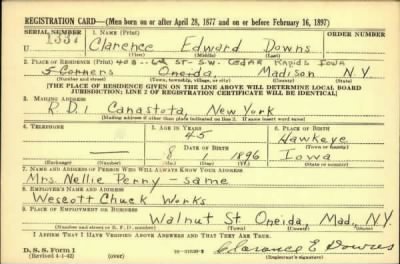 REGISTRATION CARD—(Men born on or after April 28, 1877 and on or before February 16, 1897)
SERIAL NUMBER 1. NAME (Print) ORDER NUMBER
U Clarence Edward Downs
(First) (Middle) (Last)
2. PLACE OF RESIDENCE (Print) 408--6th St-S.W. Cedar Rapids Iowa
5 Corners Oneida, Madison N.Y.
(Number and street) (Town, township, village, or city) (County) (State)
[THE PLACE OF RESIDENCE GIVEN ON THE LINE ABOVE WILL DETERMINE LOCAL BOARD
JURISDICTION; LINE 2 OF REGISTRATION CERTIFICATE WILL BE IDENTICAL]
3. MAILING ADDRESS
R.D.1 Canastota, New York
(Mailing address if other than place indicated on line 2. If same insert word same)
4. TELEPHONE 5. AGE IN YEARS 6. PLACE OF BIRTH
45 Hawkeye
DATE OF BIRTH (Town or county)
8 1 1896 Iowa
(Exchange) (Number) (Mo.) (Day) (Yr.) (State or country)
7. NAME AND ADDRESS OF PERSON WHO WILL ALWAYS KNOW YOUR ADDRESS
Mrs. Nellie Perry — same
8. EMPLOYER'S NAME AND ADDRESS
Wescott Chuck Works
9. PLACE OF EMPLOYMENT OR BUSINESS
Walnut St. Oneida, Mad., N.Y.
(Number and street or R. F. D. number) (Town) (County) (State)
I AFFIRM THAT I HAVE VERIFIED ABOVE ANSWERS AND THAT THEY ARE TRUE.
D. S. S. Form 1 Clarence E Downs
(Revised 4-1-42) (over) (Registrant's signature)